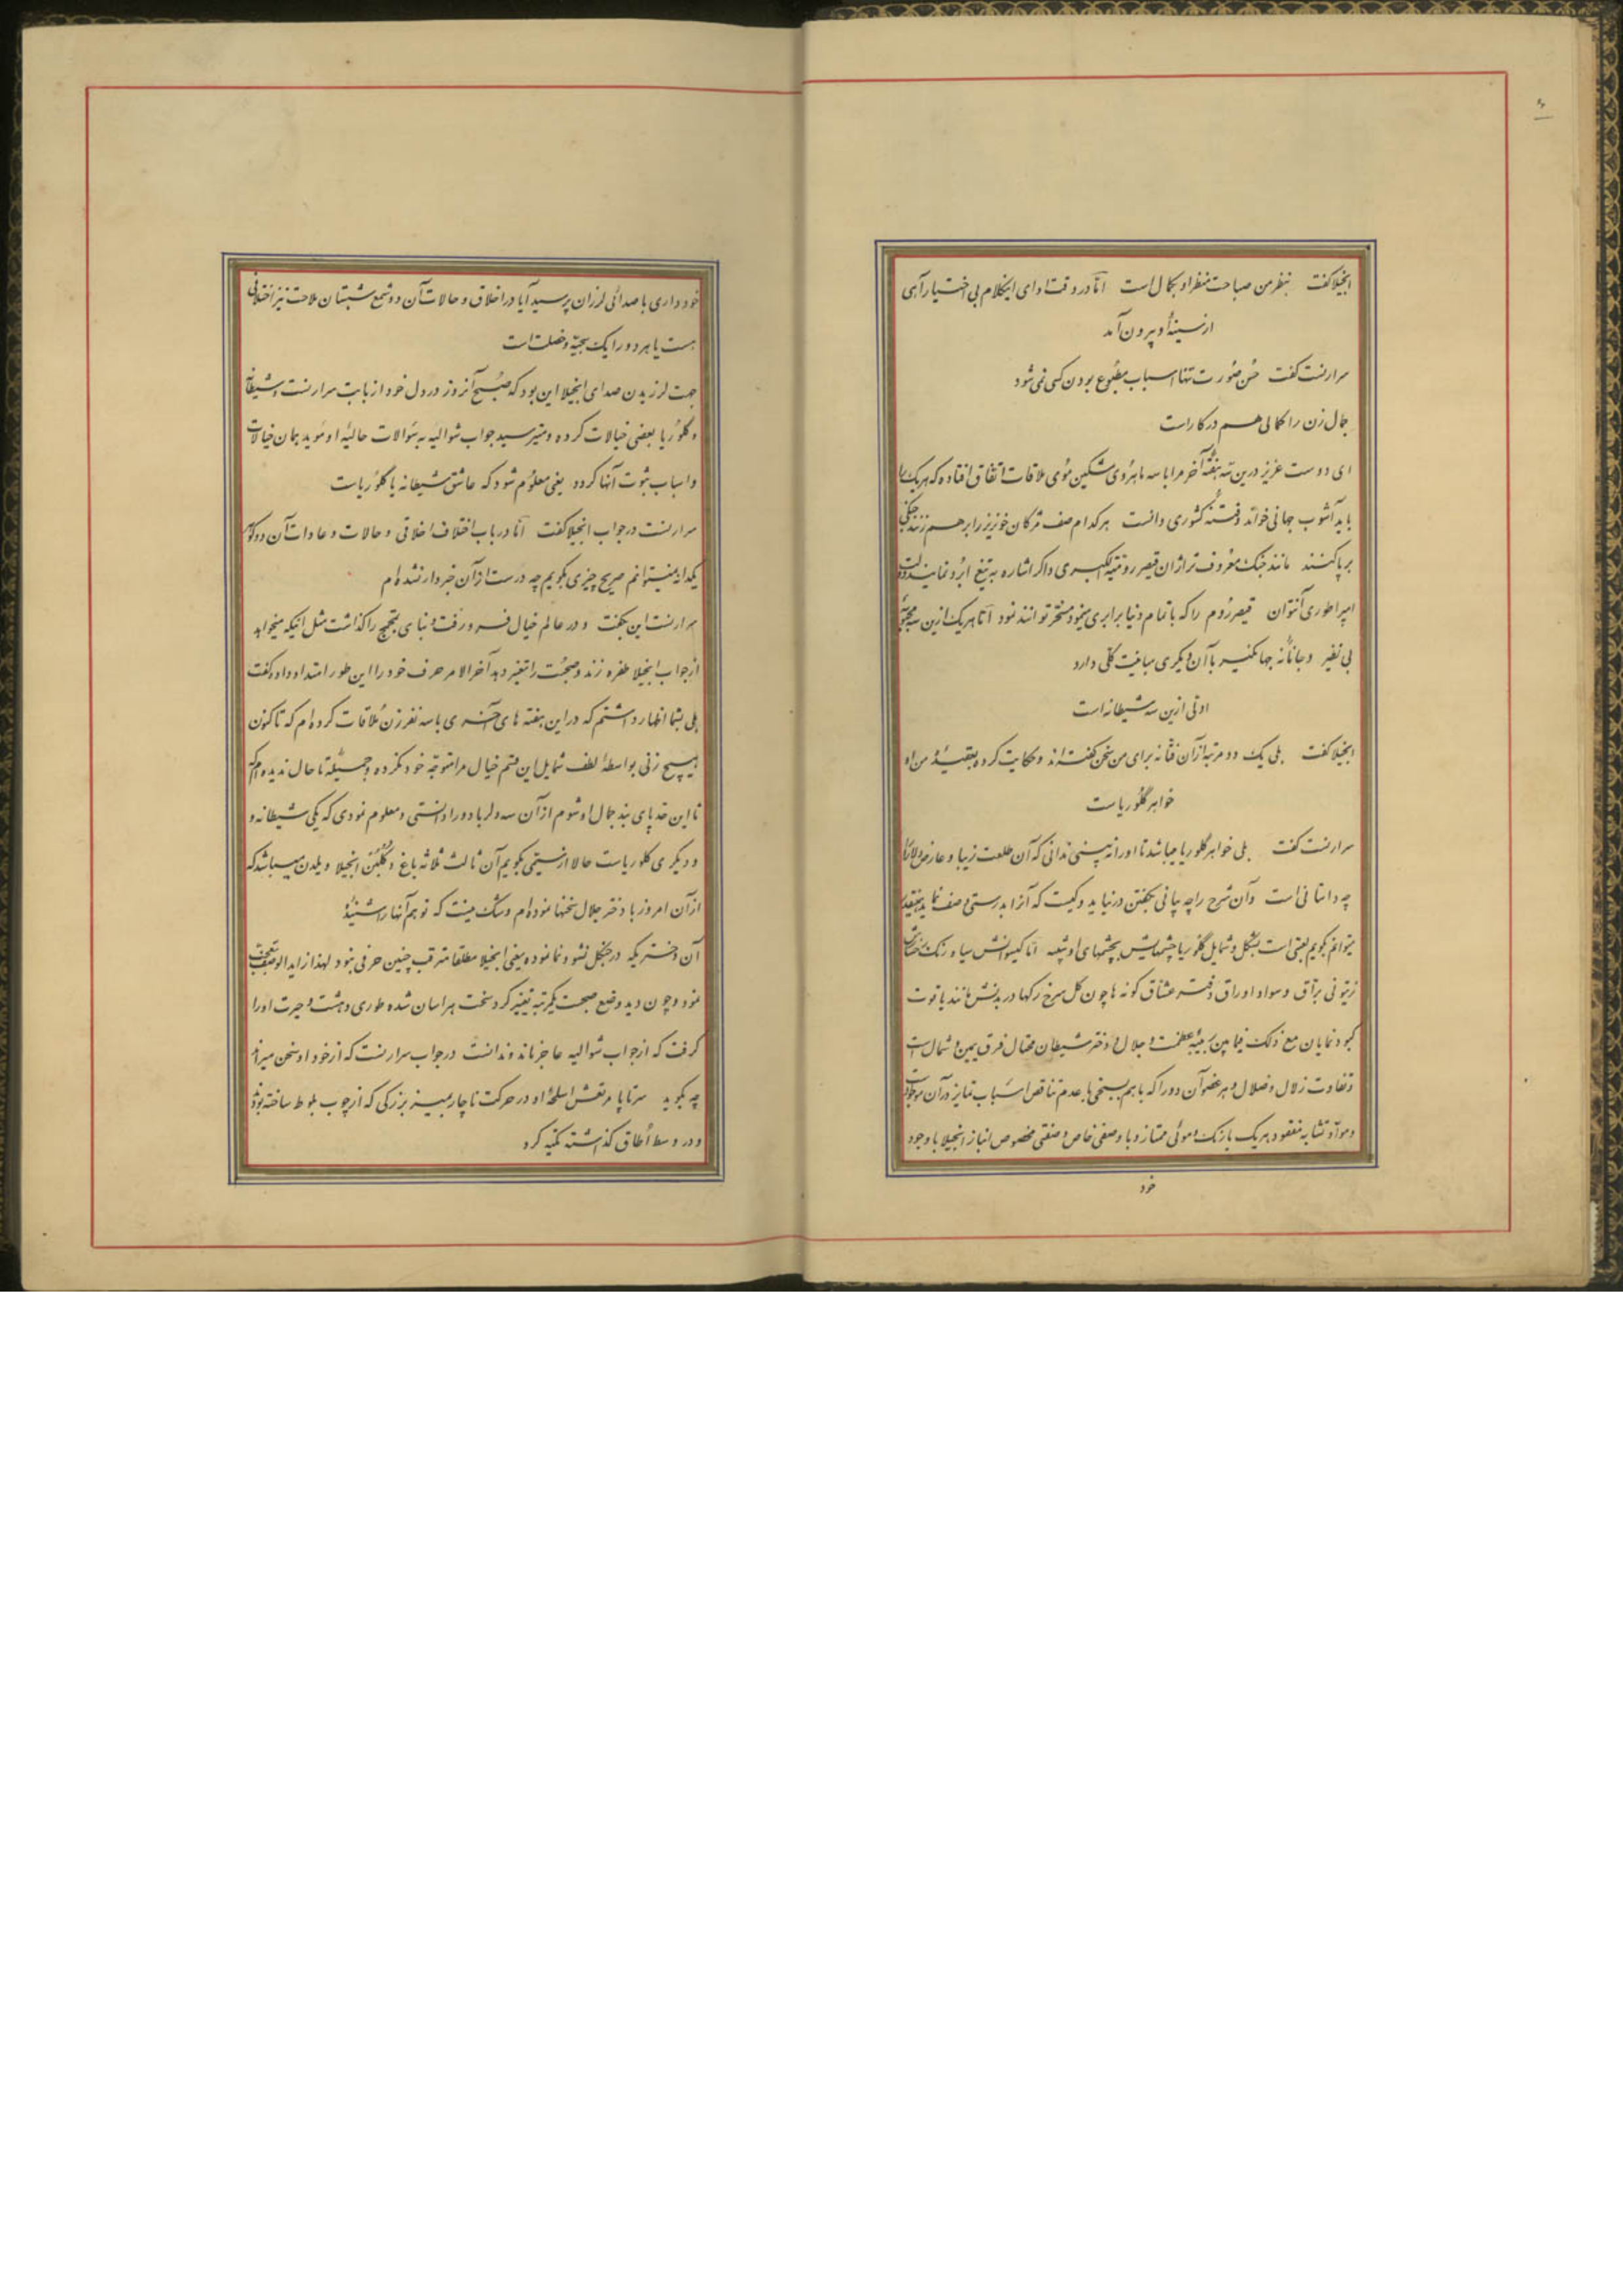 ۶
انجیلا گفت بنظر من صباحت منظر او بکمال است امّا در وقت ادای اینکلام بی اختیار آهی
از سینهٔ او بیرون آمد
سرارنست گفت حُسن صُورت تنها اسباب مطبُوع بودن کسی نمی شود
جمال زن را کمالی هم در کار است
ای دوست عزیز درین سه هفتهٔ آخر مرا با سه ماهرُوی مشکین مُوی ملاقات اتفاق افتاده که هر یک را
باید آشوب جهانی خواند و فتنهٔ کشوری دانست هر کدام صف مژگان خونریز را برهم زنند جنگی
برپا کنند مانند جنگ معرُوف تراژان قیصر رومیّة الکبری و اگر اشاره به تیغ ابرُو نمایند دولت
امپراطوری آنتوان قیصر رُوم را که با تمام دنیا برابری مینمود مسخّر توانند نمود امّا هر یک ازین سه محبُوبهٔ
بی نظیر و جانانهٔ جهانگیر با آن دیگری مباینت کلّی دارد
اوّلی ازین سه شیطانه است
انجیلا گفت بلی یک دو مرتبه از آن فتّانه برای من سخن گفته‌اند و حکایت کرده بعقیدهٔ من او
خواهر گلُوریا است
سرارنست گفت بلی خواهر گلوریا میباشد تا او را نه بینی ندانی که آن طلعت زیبا و عارض دلارا
چه داستانی است و آن شرح را چه بیانی بگفتن درنیاید و کیست که آنرا بدرستی وصف نماید اینقدر
میتوانم بگویم لعبتی است بشکل و شمایل گلوریا چشمهایش بچشمهای او شبیه امّا گیسوانش سیاه و رنگ رخسارش
زیتونی برّاق و سواد اوراق دفتر عشّاق گونه ها چون گل سرخ رگها در بدنش مانند یاقوت
کبود نمایان مع ذلک فیما بین ربیبهٔ عظمت و جلال و دختر شیطان محتال فرق یمین و شمال است
و تفاوت زلال و ضلال و هر عضو آن دو را که با هم بسنجی با عدم تناقص اسباب تمایز در آن موجود است
و موادّ تشابه مفقود هر یک با رنگ و موئی ممتاز و با وصفی خاص و صفتی مخصوص انباز انجیلا با وجود
خود
خودداری با صدائی لرزان پرسید آیا در اخلاق و حالات آن دو شمع شبستان ملاحت نیز اختلافی
هست یا هر دو را یک سجیّه و خصلت است
جهت لرزیدن صدای انجیلا این بود که صُبح آنروز در دل خود از بابت سرارنست و شیطانه
و گلُوریا بعضی خیالات کرده و میترسید جواب شوالیه به سُوالات حالیّهٔ او مُوید همان خیالات
و اسباب ثبُوت آنها گردد یعنی معلُوم شود که عاشق شیطانه یا گلُوریاست
سرارنست در جواب انجیلا گفت امّا در باب اختلاف اخلاقی و حالات و عادات آن دو گوهر
یکدانه نمیتوانم صریح چیزی بگویم چه درست از آن خبردار نشده‌ام
سرارنست این بگفت و در عالم خیال فرو رفت و بنای تمجمج را گذاشت مثل اینکه میخواهد
از جواب انجیلا طفره زند و صحبت را تغییر دهد آخرالامر حرف خود را این طور امتداد داد و گفت
بلی بشما اظهار داشتم که در این هفته های آخری با سه نفر زن مُلاقات کرده‌ام که تا کنون
هیچ زنی بواسطهٔ لطف شمایل این قسم خیال مرا متوجّه خود نکرده و جمیله تا حال ندیده‌ام که
تا این حد پای بند جمال او شوم از آن سه دلربا دو را دانستی و معلوم نمودی که یکی شیطانه و
و دیگری گلوریاست حالا ار نستی بگویم آن ثالث ثلاثه باغ و گلبُن انجیلا ویلدن میباشد که
از آن امروز با دختر جلال سخنها نموده‌ام و شک نیست که تو هم آنها را شنیدهٔ
آن دختریکه در جنگل نشو و نما نموده یعنی انجیلا مطلقا مترقب چنین حرفی نبود لهذا زاید الوصف تعجّب
نمود و چون دید وضع صحبت یکمرتبه تغییر کرد سخت هراسان شده طوری دهشت و حیرت او را
گرفت که از جواب شوالیه عاجز ماند و ندانست در جواب سرارنست که از خود او سخن میراند
چه بگوید سرتاپا مرتعش اسلحهٔ او در حرکت ناچار بمیز بزرگی که از چوب بلوط ساخته بودند
و در وسط اُطاق گذاشته تکیه کرد